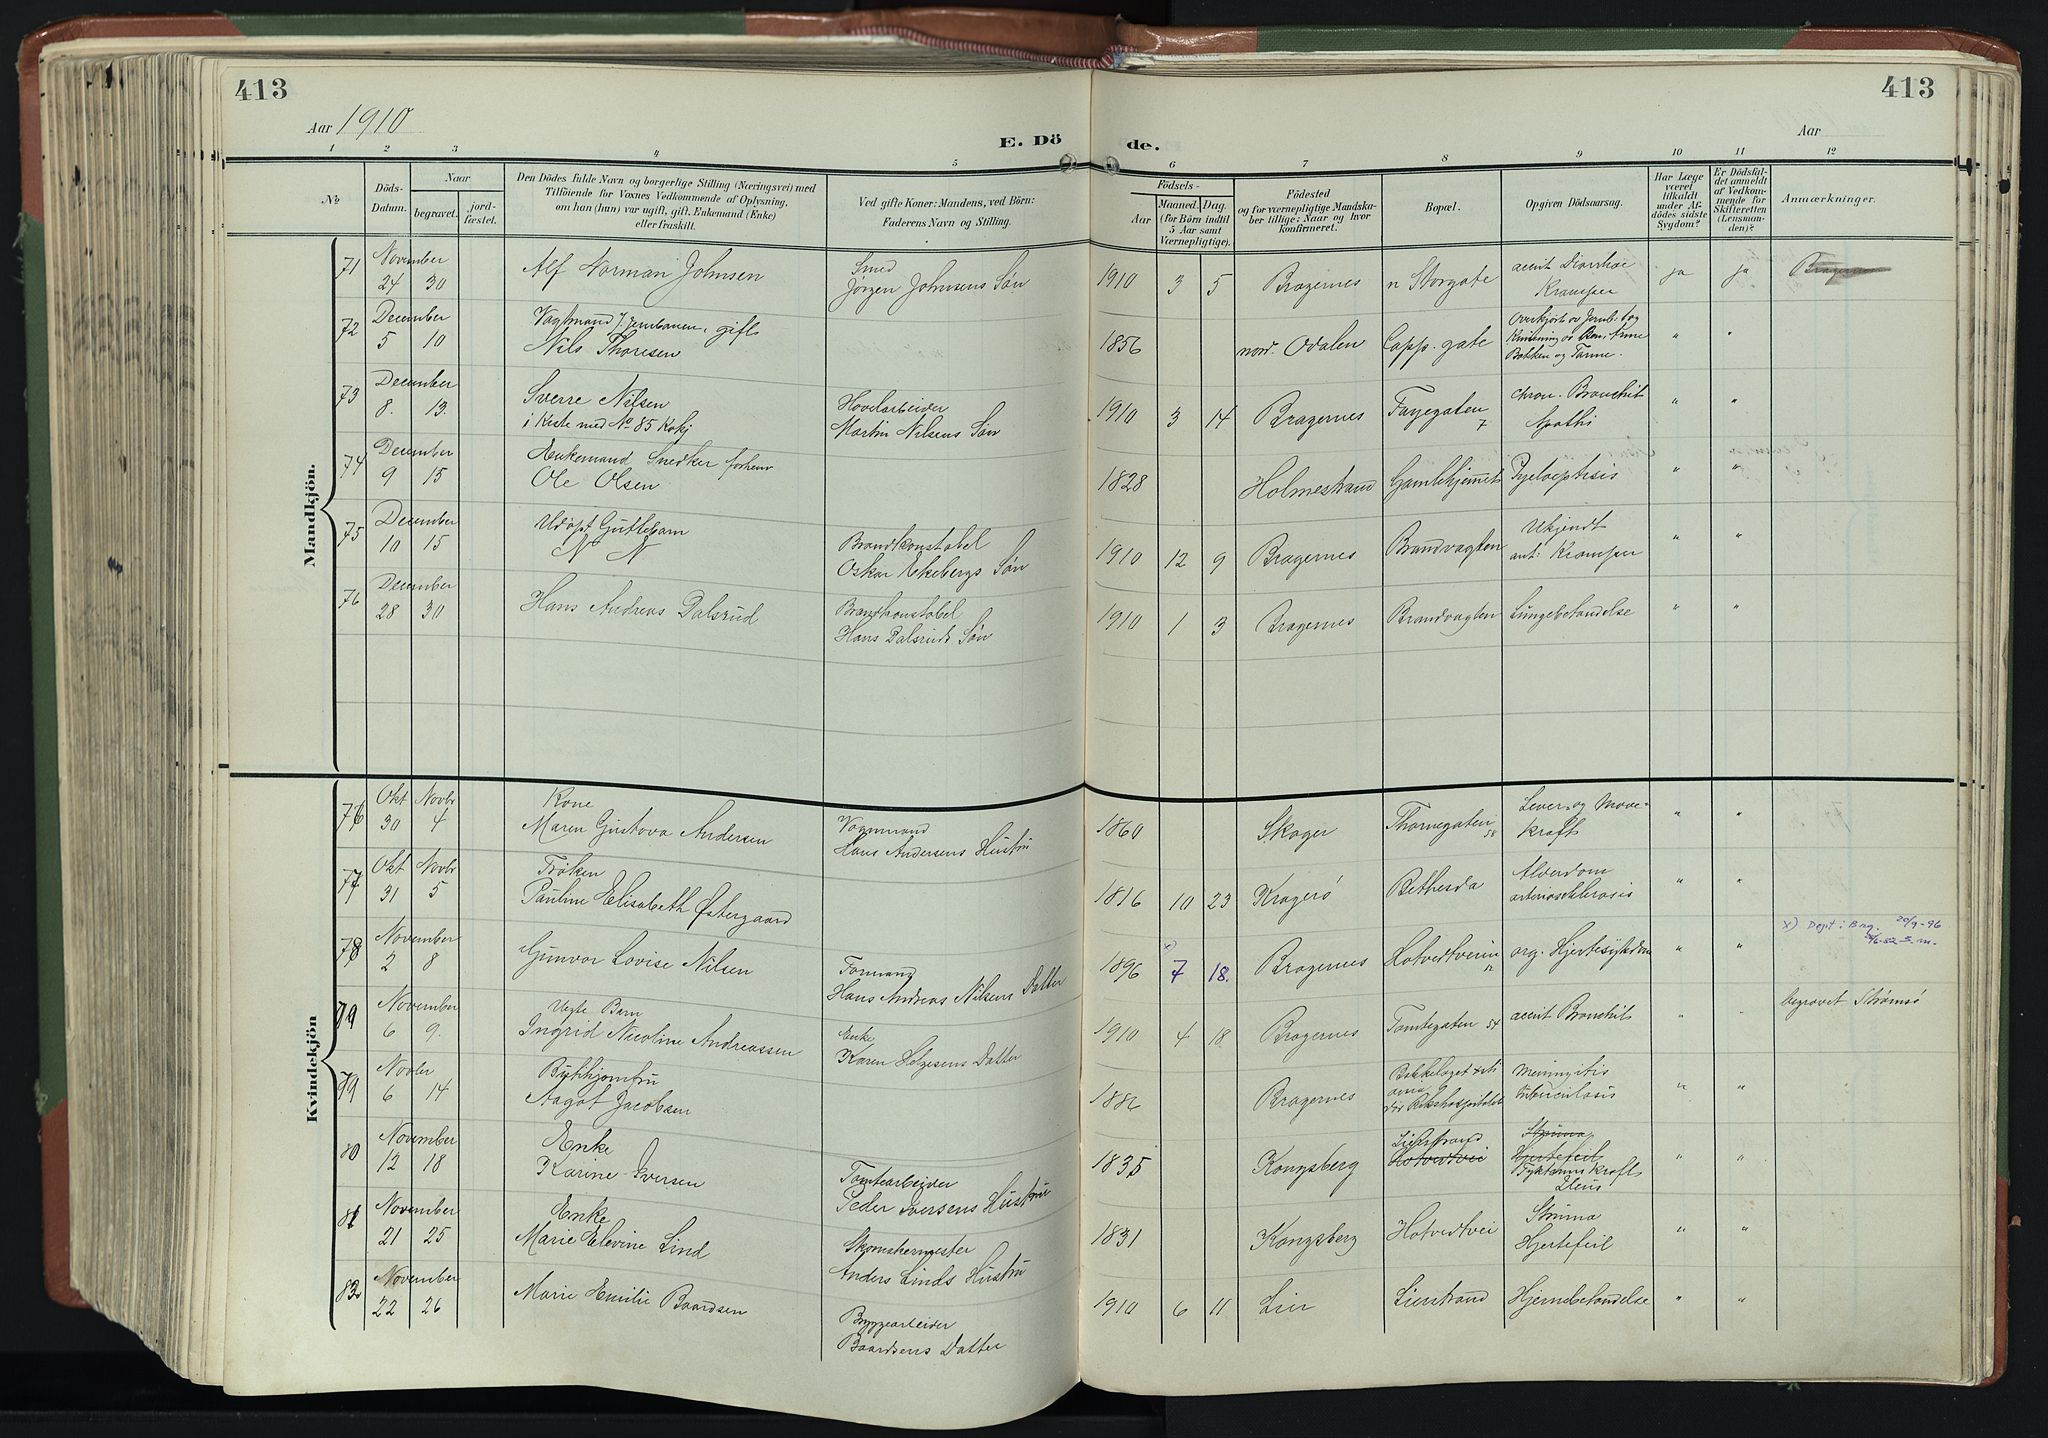 413
413
Aar 1910
Aar
E. Dö
de.
1 2 3 4 5 6 7 8 9 10 11 12
№
Döds-
Datum.
Naar
begravet.
jord-
fæstet.
Den Dödes fulde Navn og borgerlige Stilling (Næringsvei) med
Tilföiende for Voxnes Vedkommende af Oplysning,
om han (hun) var ugift, gift, Enkemand (Enke)
eller fraskilt.
Ved gifte Koner: Mandens, ved Börn:
Faderens Navn og Stilling.
Födsels-
Aar
Maaned. Dag.
(for Börn indtil
5 Aar samt
Værnepligtige).
Födested
og for værnepligtige Mandska-
ber tillige: Naar og hvor
konfirmeret.
Bopæl.
Opgiven Dödsaarsag.
Har Læge
været
tilkaldt
under Af-
dödes sidste
Sygdom?
Er Dödsfal-
det anmeldt
af Vedkom-
mende for
Skifteretten
(Lensman-
den)?
Anmærkninger.
Mandkjön.
71 November
24 30
Alf Norman Johnsen
Smed
Jørgen Johnsens Søn
1910 3 5 Bragernes n Storgate
accut Diarrhoe
Kramper
ja ja Bragernes
72 December
5 10
Vagtmand v. Jernbanen, gift
Nils Thoresen
1856 nord. Odalen Capp. gate
Overkjørt av Jernb. tog
Knusning av Ben, Arme
Bækken og Tarme.
" "
73 December
8. 13.
Sverre Nilsen
i Kiste med No 85 Kvkj
Hovelarbeider
Martin Nilsens Søn
1910 3 14 Bragernes Fayegaten
7
chron. Bronchit
Apathi
" "
74 December
9 15
Enkemand Snedker forhenv
Ole Olsen
1828 Holmestrand Gamlehjemmet Pyeloeptisis " "
75 December
10 15
Udøpt Guttebarn
N N
Brandkonstabel
Oskar Ekebergs Søn
1910 12 9 Bragernes Brandvagten
Ukjendt
ant: Kramper
" "
76 December
28 30
Hans Andreas Dalsrud
Brandkonstabel
Hans Dalsruds Søn
1910 1 3 Bragernes Brandvagten Lungebetændelse " "
Kvindekjön
76 Okt Novbr
30 4
Kone
Maren Gustava Andersen
Vognmand
Hans Andersens Hustru
1860 Skoger Thornegaten 58
Lever og Mave-
kræft
" "
77 Okt Novbr
31 5
Frøken
Pauline Elisabeth Østergaard
1816 10 23 Kragerø Bethesda
Alderdom
arteriosclerosis
" "
78 November
2 8
Gunvor Lovise Nilsen
Formand
Hans Andreas Nilsens Datter
1896 x) 7 18. Bragernes Hotvedtveien
org. Hjertesykdom
" "
x) Døpt i Brag. 20/9-96
79 November
6 9.
Uegte Barn
Ingrid Nicoline Andreassen
Enke
Karen Helgesens Datter
1910 4 18 Bragernes Tomtegaten 54 accut Bronchit " "
begravet Strømsø
79 Novbr
6 14
Aagot Jacobsen
Bragernes
Rikshospitalet
Meningitis
tuberculosis
" "
80 November
12 18
Enke
Karine Iversen
Tomtearbeider
Peder Iversens Hustru
1835 Kongsberg
Lierstrand
Hotvedtvei
Struma
Hjertefeil
Tyktarmskræft
Ileus
" "
81 November
21 25
Enke
Marie Elevine Lind
Skomakermester
Anders Linds Hustru
1831 Kongsberg Hotvedtvei
Struma
Hjertefeil
" "
82 November
22 26
Marie Emilie Baardsen
Bryggearbeider
Baardsens Datter
1910 6 11 Lier Lierstrand Hjernebetændelse " "